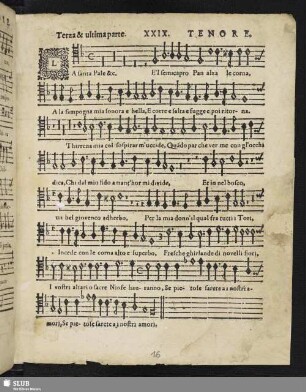 Terza & ultima parte. XXIX. TENORE.
L
A santa Pale &c. E'l semicapro Pan alza le corna,
A la sampogna mia sonora e bella, E corre e salta e fugge e poi ritor- na.
mia col sospirar m'uccide, Quãdo par che ver me con gl'occhi
dica, Chi dal mio fido amanthor mi divide, Et io nel bosco,
un bel giovenco adherbo, Per la mia donn'il qual fra tutti i Tori,
Incede con le corna alto e superbo, Fresche ghirlande di novelli fiori,
I vostri altari o sacre Ninfe hau- ranno, Se pie- tose sarete a i nostri a-
mori, Se pie- tose sarete a i nostri amori.
16
SLUB